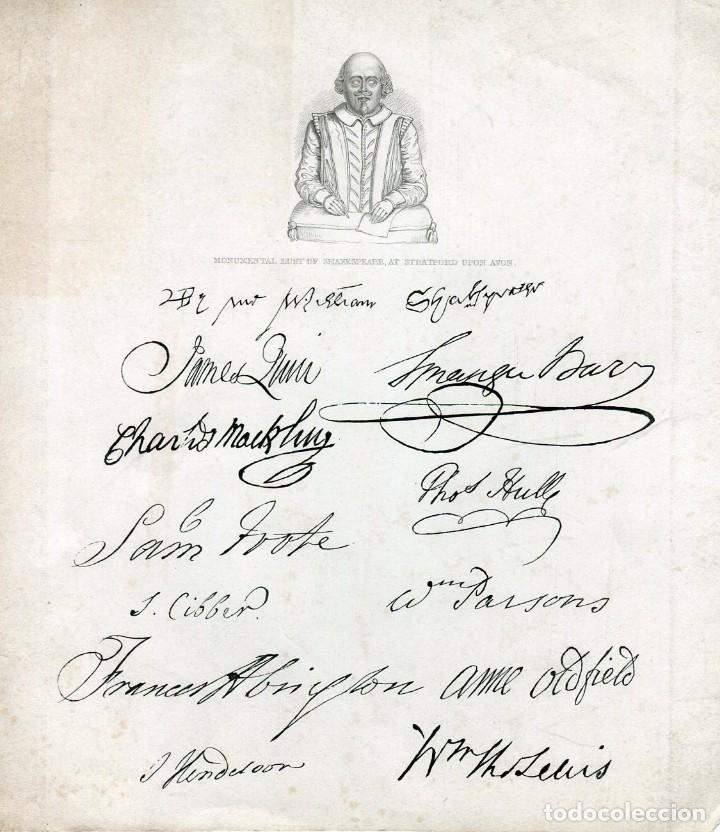 MONUMENTAL BUST OF SHAKESPEARE, AT STRATFORD UPON AVON.
By me William Shakspeare
James Quin
Spranger Barry
Charles Macklin
Thos Hull
Sam Foote
S. Cibber.
Wm Parsons
Frances Abington
Anne Oldfield
J Henderson
Wm Thos Lewis
todocoleccion